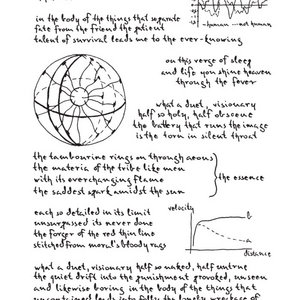 —human —not human
in the body of the things that separate
fate from the friend the patient
talent of survival leads me to the ever-knowing
on this verge of sleep
and life you shine heaven
through the fever
what a duet, visionary
half so holy, half obscene
the battery that runs the image
is the torn in silent throat
the tambourine rings on through aeons
the materia of the tribe like men
with its overchanging flame
the saddest spark amidst the sun
the essence
each so detailed in its limit
unsurpassed its never done
the forger of the red thin line
stitched from moral's bloody rags
velocity
b
a
distance
what a duet, visionary half so naked, half untrue
the quiet drift into the punishment provoked, unseen
and likewise boring in the body of the things that